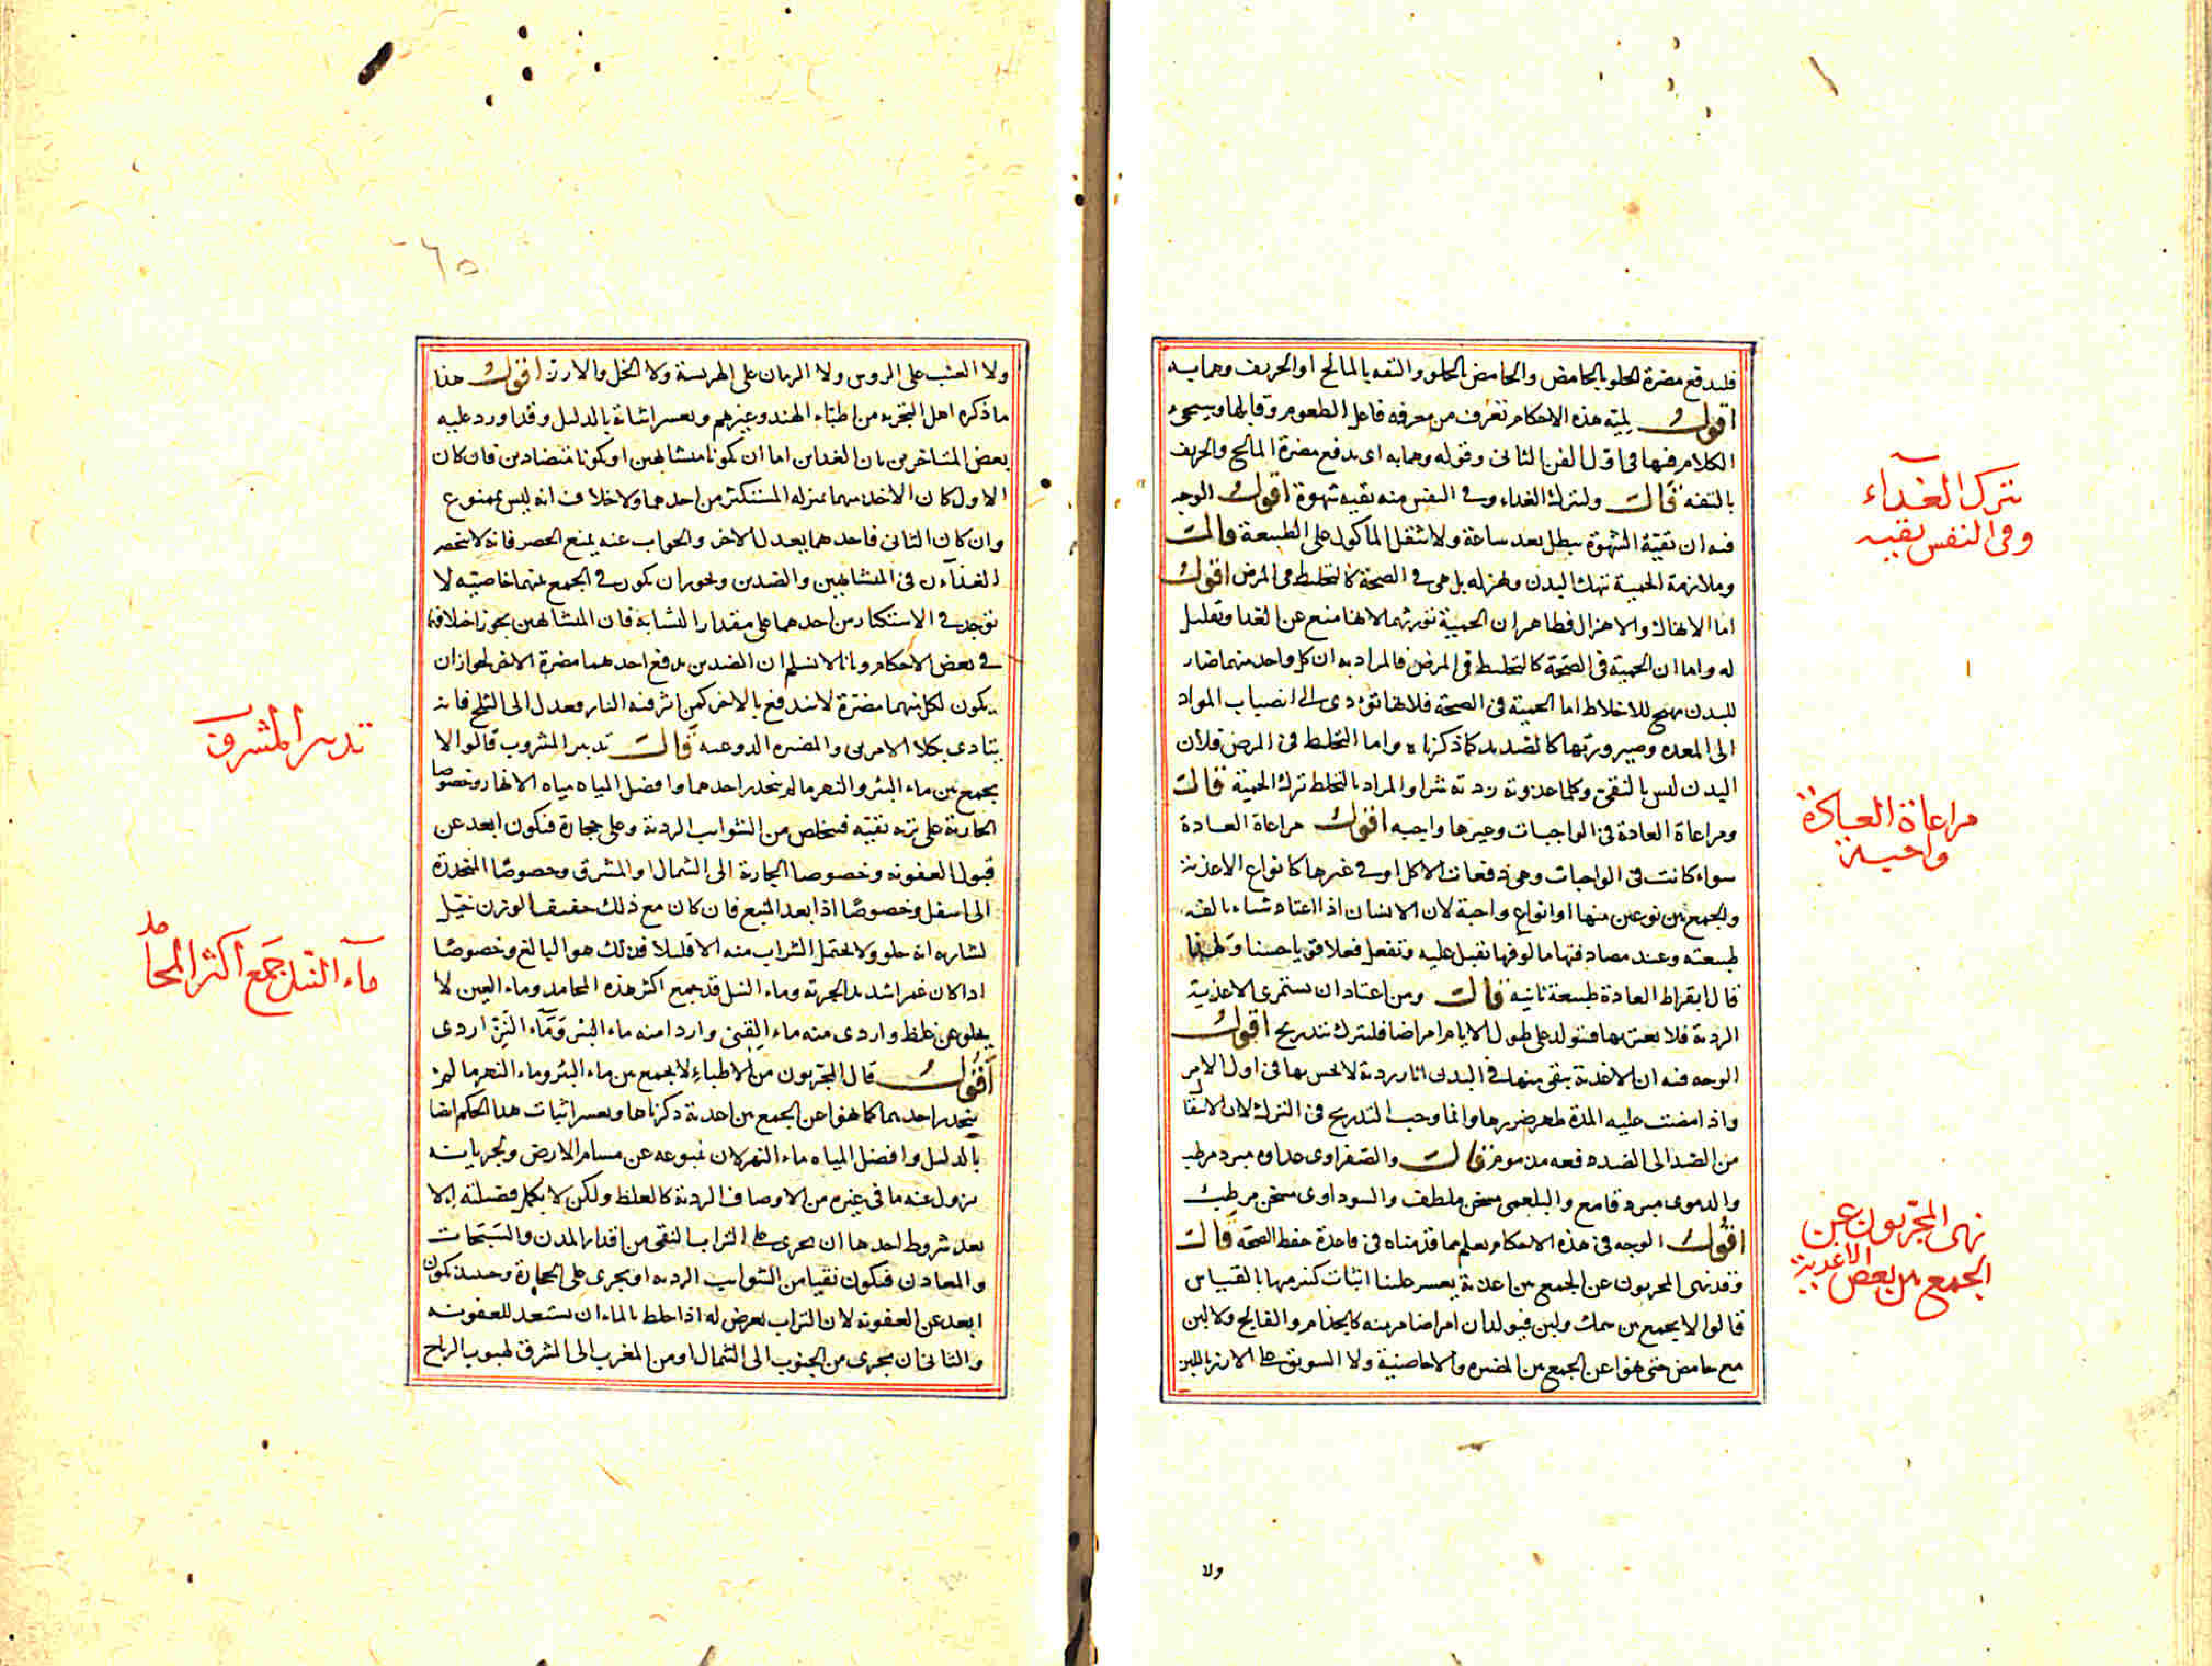 فليدفع مضرة الحلو بالحامض والحامض بالحلو والتفه بالمالح او الحريف وهما به
اقول لمية هذه الاحكام تعرف من معرفة فاعل الطعوم وقابلها وسيجىء
الكلام فيها فى اول الفن الثانى وقوله وهما به اى يدفع مضرة المالح والحريف
بالتفه قال وليترك الغداء وفى النفس منه بقيه شهوة اقول الوجه
فيه ان بقية الشهوة يبطل بعد ساعة ولا يثقل الماكول على الطبيعة قال
وملازمة الحمية تنهك البدن وتهزله بل هى فى الصحة كالتخليط فى المرض اقول
اما الانهاك والاهزال فظاهر ان الحمية تورثهما لانها منع عن الغدا وتقليل
له واما ان الحمية فى الصحة كالتخليط فى المرض فالمراد به ان كل واحد منهما ضار
للبدن مهيج للاخلاط اما الحمية فى الصحة فلانها تؤدى الى انصباب المواد
الى المعده وصيرورتها كالصديد كما ذكرناه واما التخليط فى المرض فلان
البدن ليس بالنقى وكلما غذوته زدته شرا والمراد بالتخليط ترك الحمية قال
ومراعاة العادة فى الواجبات وغيرها واجبه اقول مراعاة العادة
سواء كانت فى الواجبات وهى دفعات الاكل او فى غيرها كانواع الاغذية
والجمع بين نوعين منها او انواع واجبة لان الانسان اذا اعتاد شيئا بالفته
طبيعته وعند مصادفتها مالوفها تقبل عليه وتفعل فعلا قويا حسنا ولهذا
قال ابقراط العادة طبيعة ثانيه قال ومن اعتاد ان يستمرى الاغذية
الردية فلا يغتر بها فستولد على طول الايام امراضا فليترك بتدريج اقول
الوجه فيه ان الاغذية يبقى منها فى البدن اثار ردية لا يحس بها فى اول الامر
واذا مضت عليه المدة ظهر ضررها وانما وجب التدريج فى الترك لان الانتقال
من الضد الى الضد دفعه مذموم قال والصفراوى غداوه مبرد مرطب
والدموى مبرد قامع والبلغمى مسخن ملطف والسوداوى مسخن مرطب
اقول الوجه فى هذه الاحكام يعلم مما قدمناه فى قاعدة حفظ الصحة قال
وقد نهى المجربون عن الجمع بين اغذية يعسر علينا اثبات كثير منها بالقياس
قالوا لا يجمع بين سمك ولبن فيولدان امراضا مزمنه كالجذام والفالج ولا لبن
مع حامض حتى نهوا عن الجمع بين المضيره والاجاصية ولا السويق على الارز باللبن
ولا
يترك الغداء
وفى النفس بقيه
مراعاة العادة
واجبة
نهى المجربون عن
الجمع بين بعض الاغدية
ولا العنب على الروس ولا الرمان على الهريسة ولا الخل والارز اقول هذا
ما ذكره اهل التجربه من اطباء الهند وغيرهم ويعسر اثباته بالدليل وقد اورد عليه
بعض المتاخرين بان الغداين اما ان يكونا متشابهين او يكونا متضادين فان كان
الاول كان الاخذ منهما بمنزلة المستكثر من احدهما ولا خلاف انه ليس بممنوع
وان كان الثانى فاحدهما يعدل الاخر والجواب عنه يمنع الحصر فانه لا ينحصر
الغذاءن فى المتشابهين والضدين ويجوز ان يكون فى الجمع بينهما خاصية لا
توجد فى الاستكثار من احدهما على مقدار التشابه فان المتشابهين يجوز اختلافهما
فى بعض الاحكام وبانا لا نسلم ان الضدين يدفع احدهما مضرة الاخر لجواز ان
يكون لكل منهما مضرة لا تندفع بالاخر كمن اثر فيه النار فعدل الى الثلج فانه
يتادى بكلا الامرين قال تدبير المشروب قالوا لا
يجمع بين ماء البئر والنهر ما لم ينحدر احدهما وافضل المياه مياه الانهار وخصوصا
الجارية على تربه نقيه فيخلص من الشوائب الردية وعلى حجارة فيكون ابعد عن
قبول العفونه وخصوصا الجارية الى الشمال او المشرق وخصوصا المنحدرة
الى اسفل وخصوصا اذا بعد المنبع فان كان مع ذلك خفيف الوزن يخيل
لشاربه انه حلو ولا يحتمل الشراب منه الا قليلا فذلك هو البالغ وخصوصا
اذا كان غمرا شديد الجرية وماء النيل قد جمع اكثر هذه المحامد وماء العين لا
يخلو عن غلظ واردى منه ماء القنى واردا منه ماء البئر وماء النز اردى
اقول قال المجربون من الاطباء لا يجمع بين ماء البئر وماء النهر ما لم
ينحدر احدهما كما نهوا عن الجمع بين اغذية ذكرناها ويعسر اثبات هذا الحكم ايضا
بالدليل وافضل المياه ماء النهر لان نبوعه عن مسام الارض وبجريانه
يزول عنه ما فى غيره من الاوصاف الردية كالغلظ ولكن لا يكمل فضيلته الا
بعد شروط احدها ان يجرى على التراب النقى من اقذار المدن والسبخات
والمعادن فيكون نقيا من الشوايب الرديه او يجرى على الحجارة وحينئذ يكون
ابعد عن العفونه لان التراب يعرض له اذا خلط بالماء ان يستعد للعفونه
والثانى ان يجرى من الجنوب الى الشمال او من المغرب الى المشرق لهبوب الرياح
تدبير المشروب
ماء النيل جمع اكثر المحامد